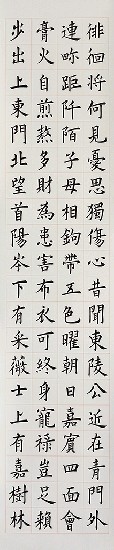 徘徊將何見憂思獨傷心昔聞東陵公近在青門外
連畛距阡陌子母相鉤帶五色曜朝日嘉賓四面會
膏火自煎熬多財為患害布衣可終身寵祿豈足賴
步出上東門北望首陽岑下有采薇士上有嘉樹林